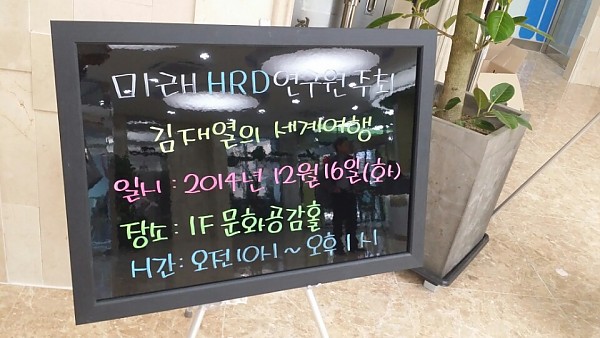 미래 HRD연구원 주최
김재열의 세계여행
일시 : 2014년 12월 16일(화)
장소 : 1F 문화공감홀
시간 : 오전 10시 ~ 오후 1시